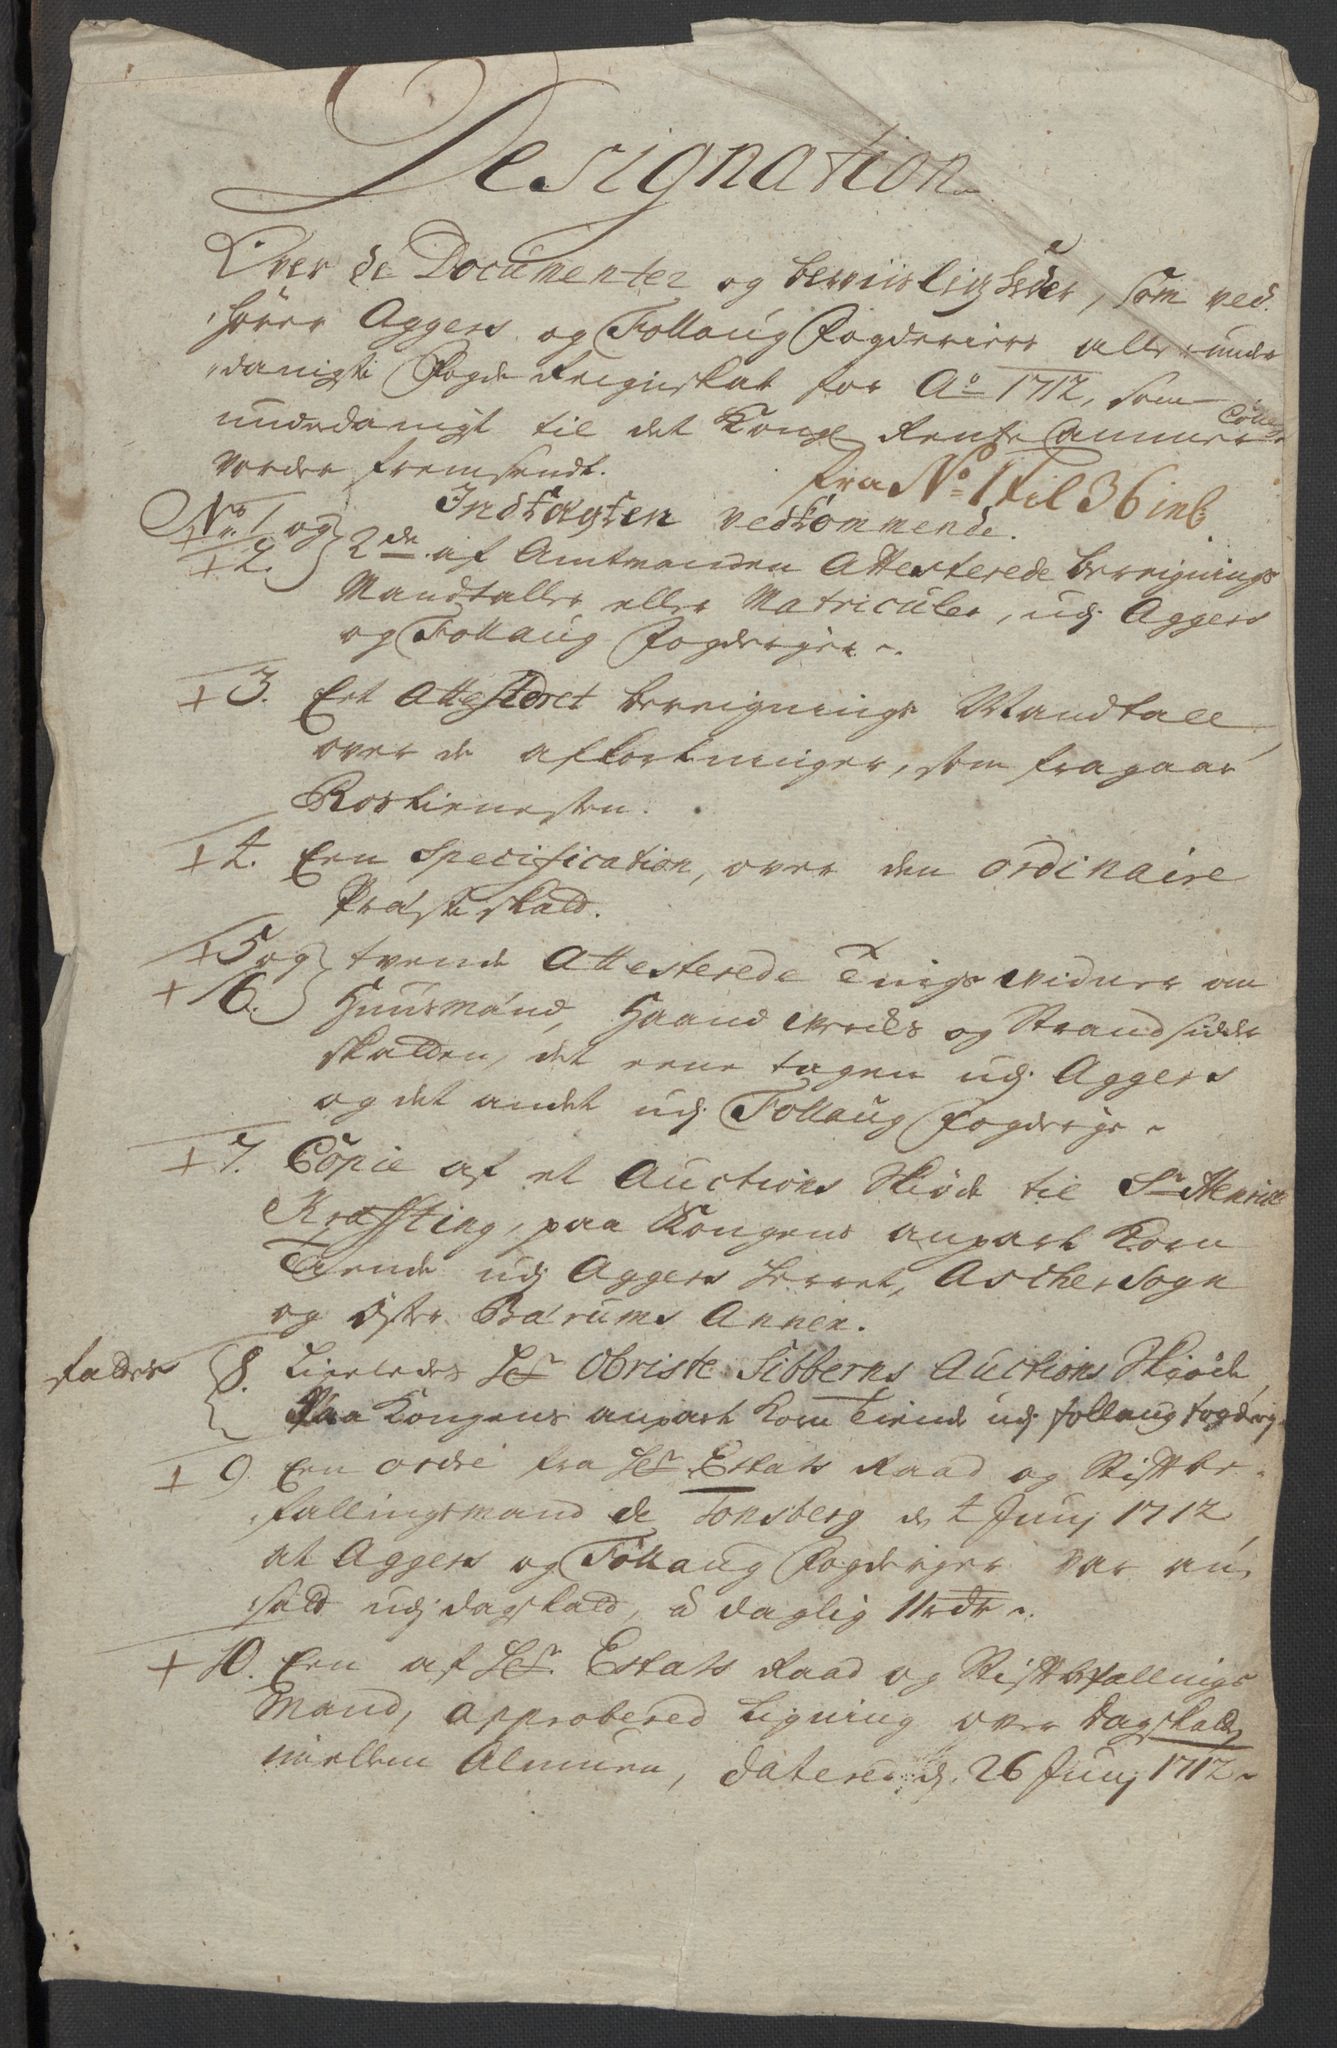 Designation
Over de Documenter og beviisligheder, som ved-
hører Aggers og Follaug Fogderiers aller under
danigste Fogde Regnskab for Ao 1712, som
underdanigst til det Kongl Rente Cammer Colleg
vorder fremsendt.
fra No 1 til 36 incl
Indtægten vedkommende.
No 1 og 2de af Amtmanden Attesterede bereignings
+ 2. Mandtaller eller Matriculer, udj Aggers
og Follaug Fogderjer.
+ 3. Eet Attesteret bereignings Mandtall
over de afkortninger, som fragaar
Rostienesten.
+ 4. Een Specification, over den ordinaire
Præste skatt.
+ 5 og tvende Attesterede Tings vidner om
+ 6. Huusmænd, Haandverks og Strandsidder
skatten, det eene tagen udj Aggers
og det andet udj Follaug Fogderje
+ 7. Copie af et Auctions Skiøde til Sr Henrich
Kræfting, paa Kongens anpart Korn
Tiende udj Aggers herret, Ascher Sogn
og Øster Bærums Annex.
falder 8. Ligeledes Hr Obriste Sibberns Auctions Skiøde
Paa Kongens anpart Korn Tiende udj follaug fogderj
+ 9 Een ordre fra Hr Estats Raad og Stiftbe-
fallingsmand de Tonsberg de 4 Junj 1712
at Aggers og Follaug Fogderjer var an-
satt udj dagskatt, a daglig 11 rdr
+ 10. Een af Hr. Estats Raad og Stiftbefallings
Mand, approbered Ligning over Dagskatt
mellem Almuen, Datered d. 26 Junj 1712